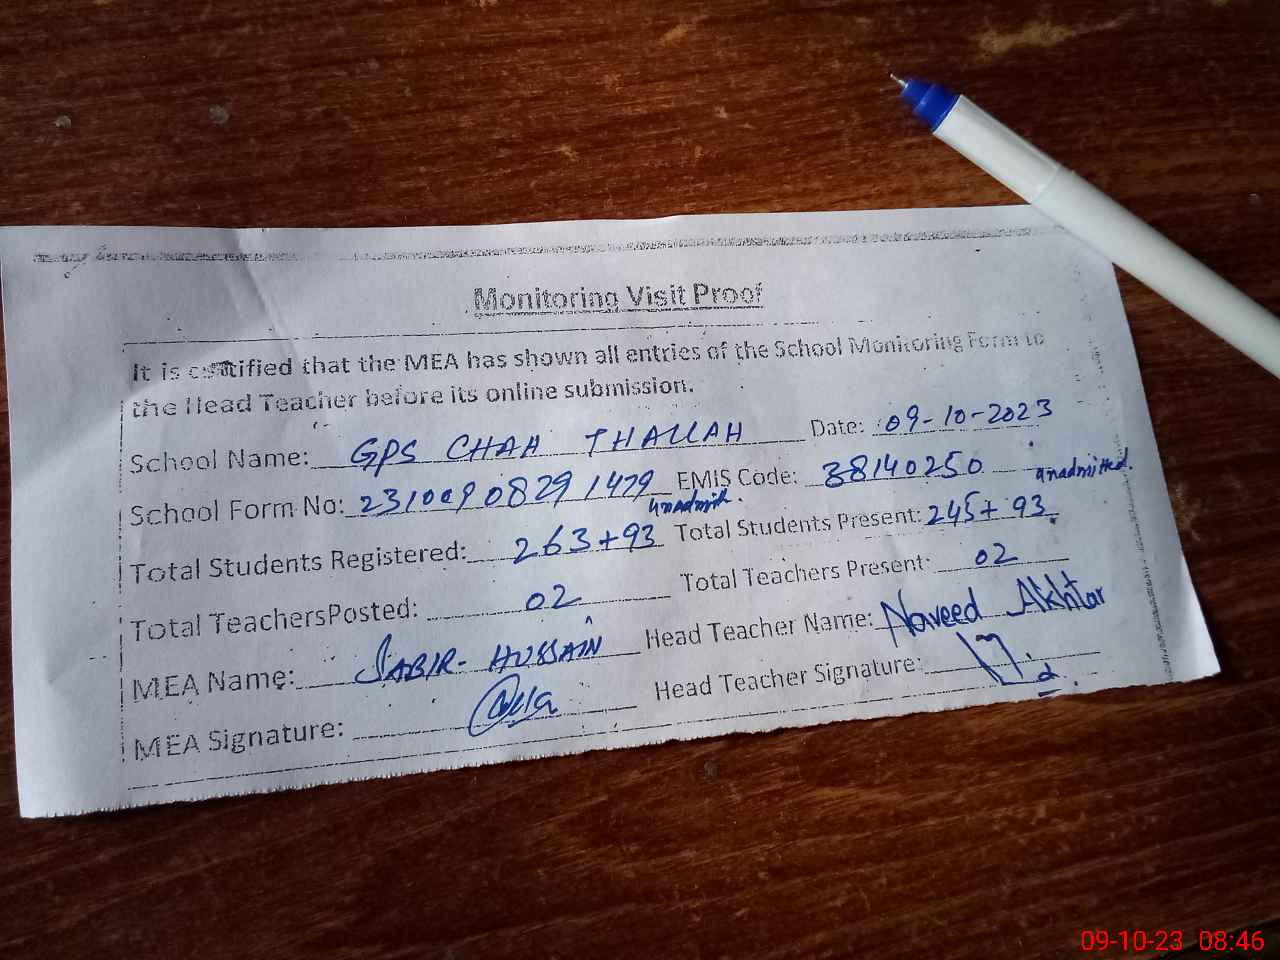 Monitoring Visit Proof
It is certified that the MEA has shown all entries of the School Monitoring Form to
the Head Teacher before its online submission.
School Name: GPS CHAH THALLAH Date: 09-10-2023
School Form No: 23100908291479 EMIS Code: 38140250
unadmitt. unadmitted.
Total Students Registered: 263+93 Total Students Present: 245+93
Total TeachersPosted: 02 Total Teachers Present: 02
MEA Name: SABIR- HUSSAIN Head Teacher Name: Naveed Akhtar
MEA Signature: Head Teacher Signature:
09-10-23 08:46